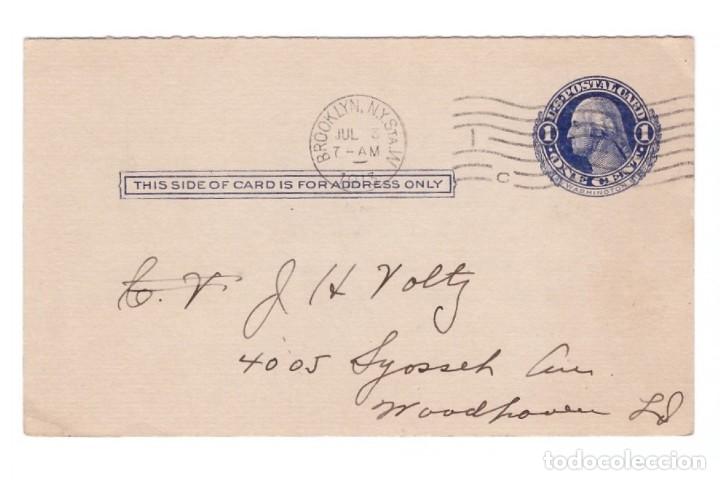 U.S. POSTAL CARD
1 1
ONE CENT
WASHINGTON
BROOKLYN, N.Y. STA. W
JUL 3
7-AM
1
C
THIS SIDE OF CARD IS FOR ADDRESS ONLY
V. J H Voltz
4005 Syosseh Ave
Woodhaven LI
todocoleccion.net